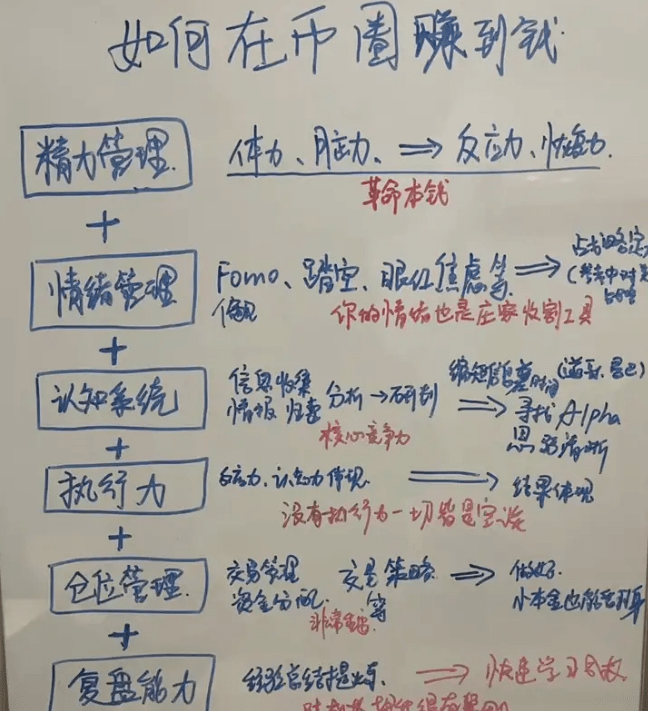 如何在币圈赚到钱
精力管理 体力、脑力、⇒ 反应力、恢复力
革命本钱
+
情绪管理 Fomo、踏空、眼红焦虑等 ⇒
偏见 你的情绪也是庄家收割工具
+
认知系统 信息收集 分析→研判 ⇒ 缩短信息差时间
情报 归纳 寻找Alpha
核心竞争力 思路清晰
+
执行力 反应力、认知力体现 ⇒ 结果体现
没有执行力一切皆是空谈
+
仓位管理 交易管理 交易策略 ⇒ 做好
资金分配 等 小本金也能
非常重要
+
复盘能力 经验总结提炼 ⇒ 快速学习